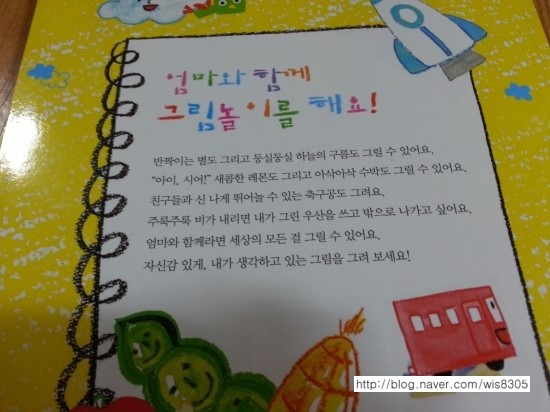 엄마와 함께
그림놀이를 해요!
반짝이는 별도 그리고 둥실둥실 하늘의 구름도 그릴 수 있어요.
"아이, 시어!" 새콤한 레몬도 그리고 아삭아삭 수박도 그릴 수 있어요.
친구들과 신 나게 뛰어놀 수 있는 축구공도 그려요.
주룩주룩 비가 내리면 내가 그린 우산을 쓰고 밖으로 나가고 싶어요.
엄마와 함께라면 세상의 모든 걸 그릴 수 있어요.
자신감 있게, 내가 생각하고 있는 그림을 그려 보세요!
http://blog.naver.com/wis8305